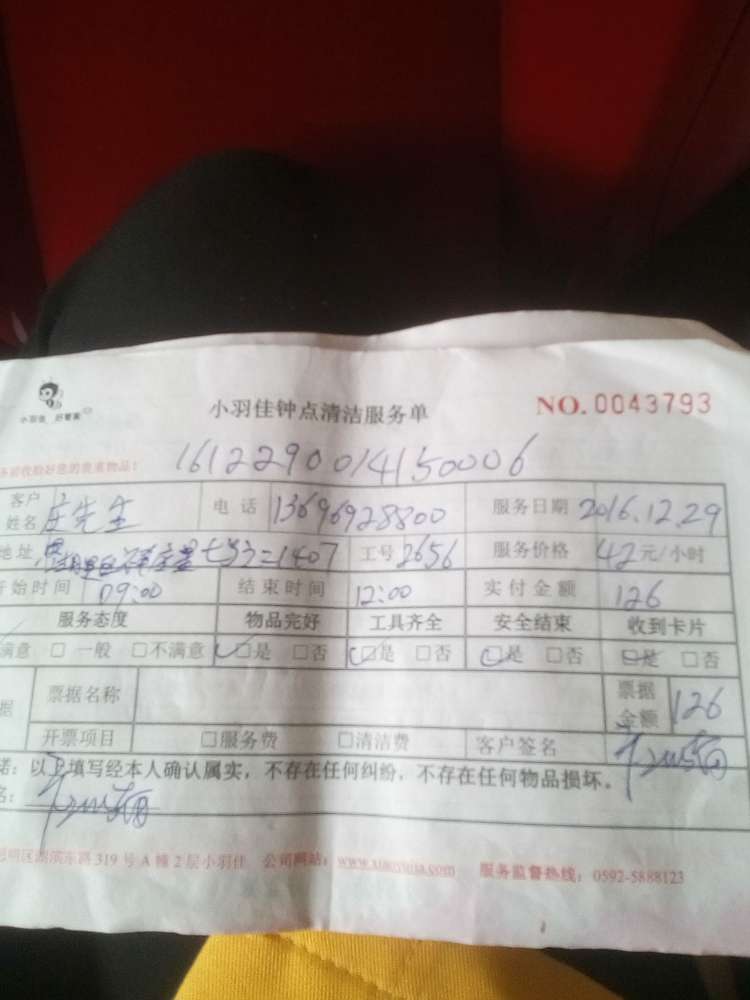 小羽佳 好管家
小羽佳钟点清洁服务单 NO. 0043793
1612290014150006
收拾好您的贵重物品：
客户姓名 庄先生 电话 13696928800 服务日期 2016.12.29
地址 1407 工号 2656 服务价格 42元/小时
开始时间 09:00 结束时间 12:00 实付金额 126
服务态度 物品完好 工具齐全 安全结束 收到卡片
满意 □一般 □不满意 □是 □否 □是 □否 □是 □否 □是 □否
据 票据名称 票据金额 126
开票项目 □服务费 □清洁费 客户签名
诺：以上填写经本人确认属实，不存在任何纠纷，不存在任何物品损坏。
名：
思明区湖滨东路319号A幢2层小羽佳 公司网站：www.xiaoyujia.com 服务监督热线：0592-5888123